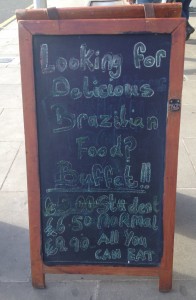 Looking for
Delicious
Brazilian
Food?
Buffet!!
Student
£6.50 Normal
£8.90 All You
CAN EAT